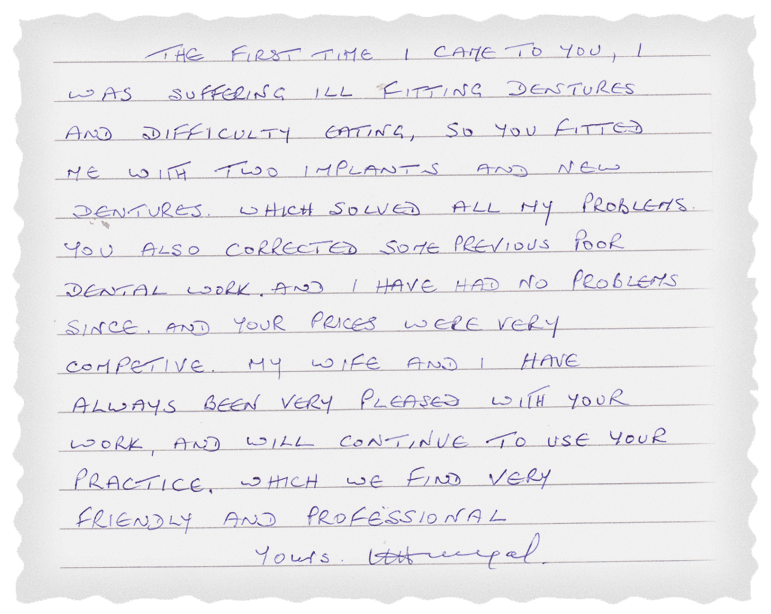 THE FIRST TIME I CAME TO YOU, I
WAS SUFFERING ILL FITTING DENTURES
AND DIFFICULTY EATING, SO YOU FITTED
ME WITH TWO IMPLANTS AND NEW
DENTURES. WHICH SOLVED ALL MY PROBLEMS.
YOU ALSO CORRECTED SOME PREVIOUS POOR
DENTAL WORK. AND I HAVE HAD NO PROBLEMS
SINCE. AND YOUR PRICES WERE VERY
COMPETIVE. MY WIFE AND I HAVE
ALWAYS BEEN VERY PLEASED WITH YOUR
WORK, AND WILL CONTINUE TO USE YOUR
PRACTICE. WHICH WE FIND VERY
FRIENDLY AND PROFESSIONAL
Yours.